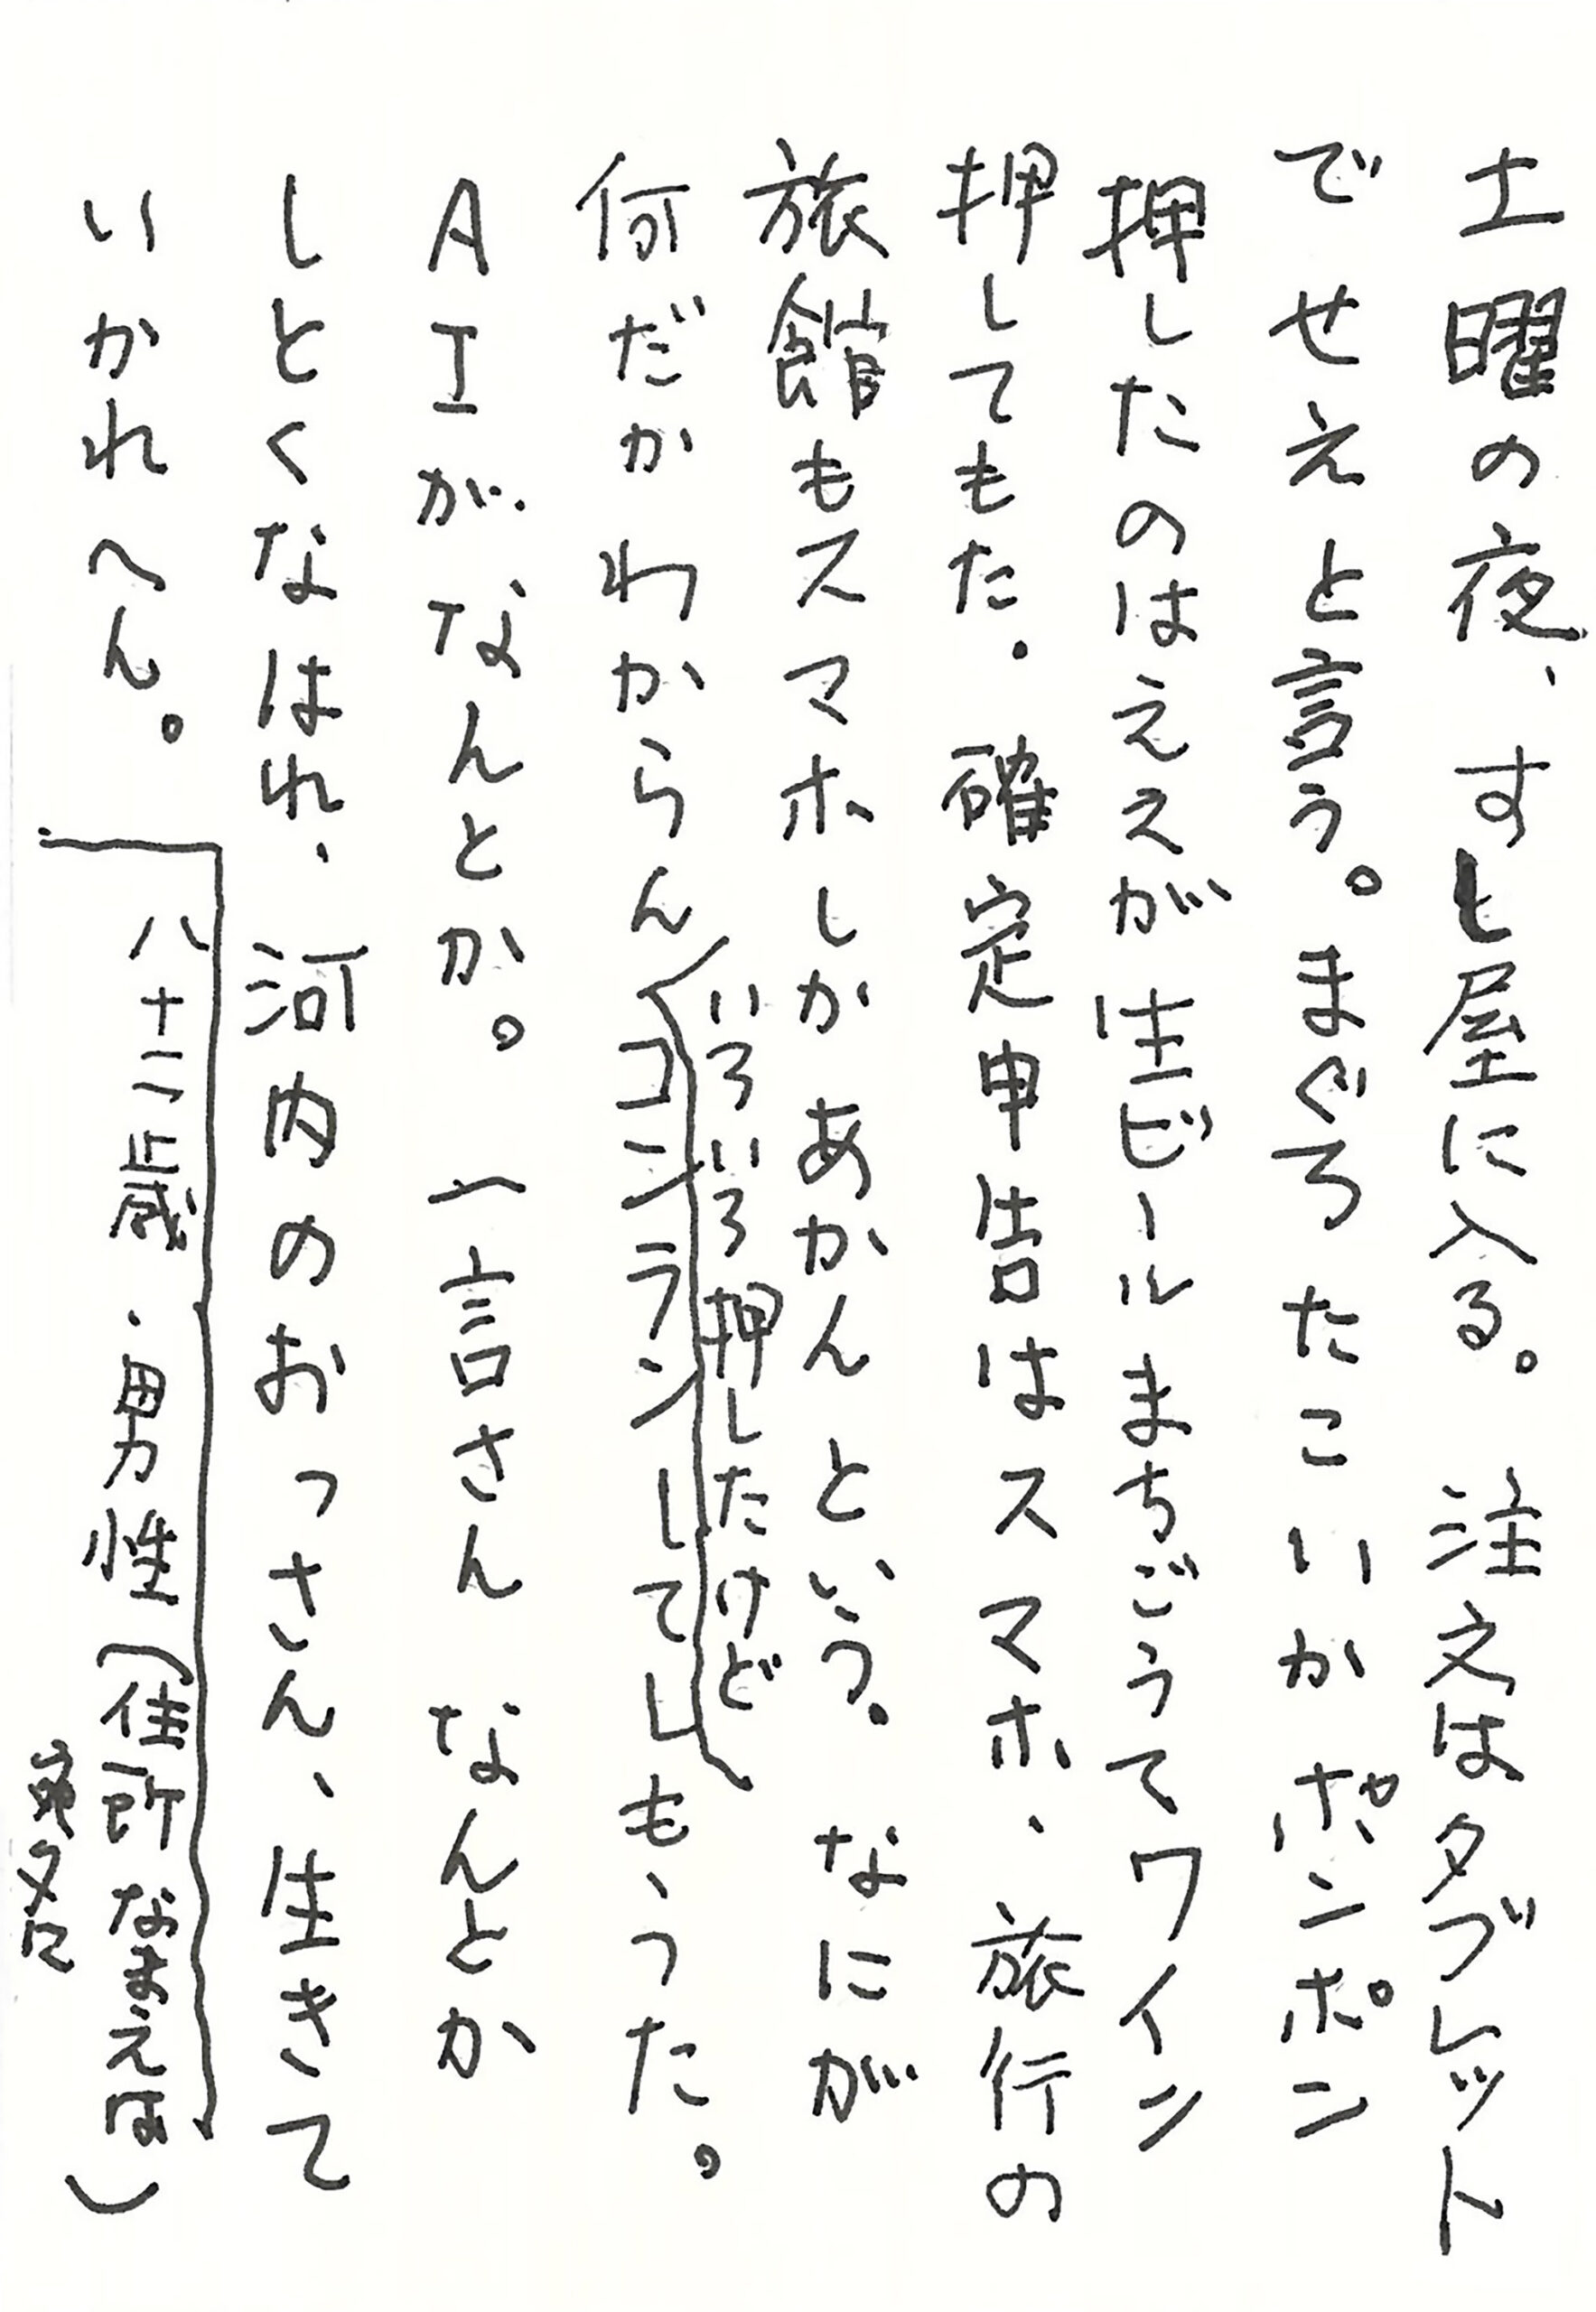 土曜の夜、すし屋に入る。注文はタブレット
でせえと言う。まぐろたこいかポンポン
押したのはええが生ビールまちごうてワイン
押してもた。確定申告はスマホ、旅行の
旅館もスマホしかあかんという。なにが
何だかわからん
いろいろ押したけど
コンランしてしもうた。
AIがなんとか。一言さんなんとか
しとくなはれ、河内のおっさん、生きて
いかれへん。
八十二歳・男性(住所なまえは
)